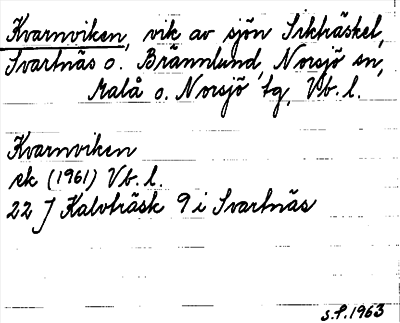 Kvarnviken, vik av sjön Sikträsket,
Svartnäs o. Brännlund, Norsjö sn,
Malå o. Norsjö tg, Vb. l.
Kvarnviken
ek (1961) Vb. l.
22 J Kalvträsk 9 i Svartnäs
S.P. 1963